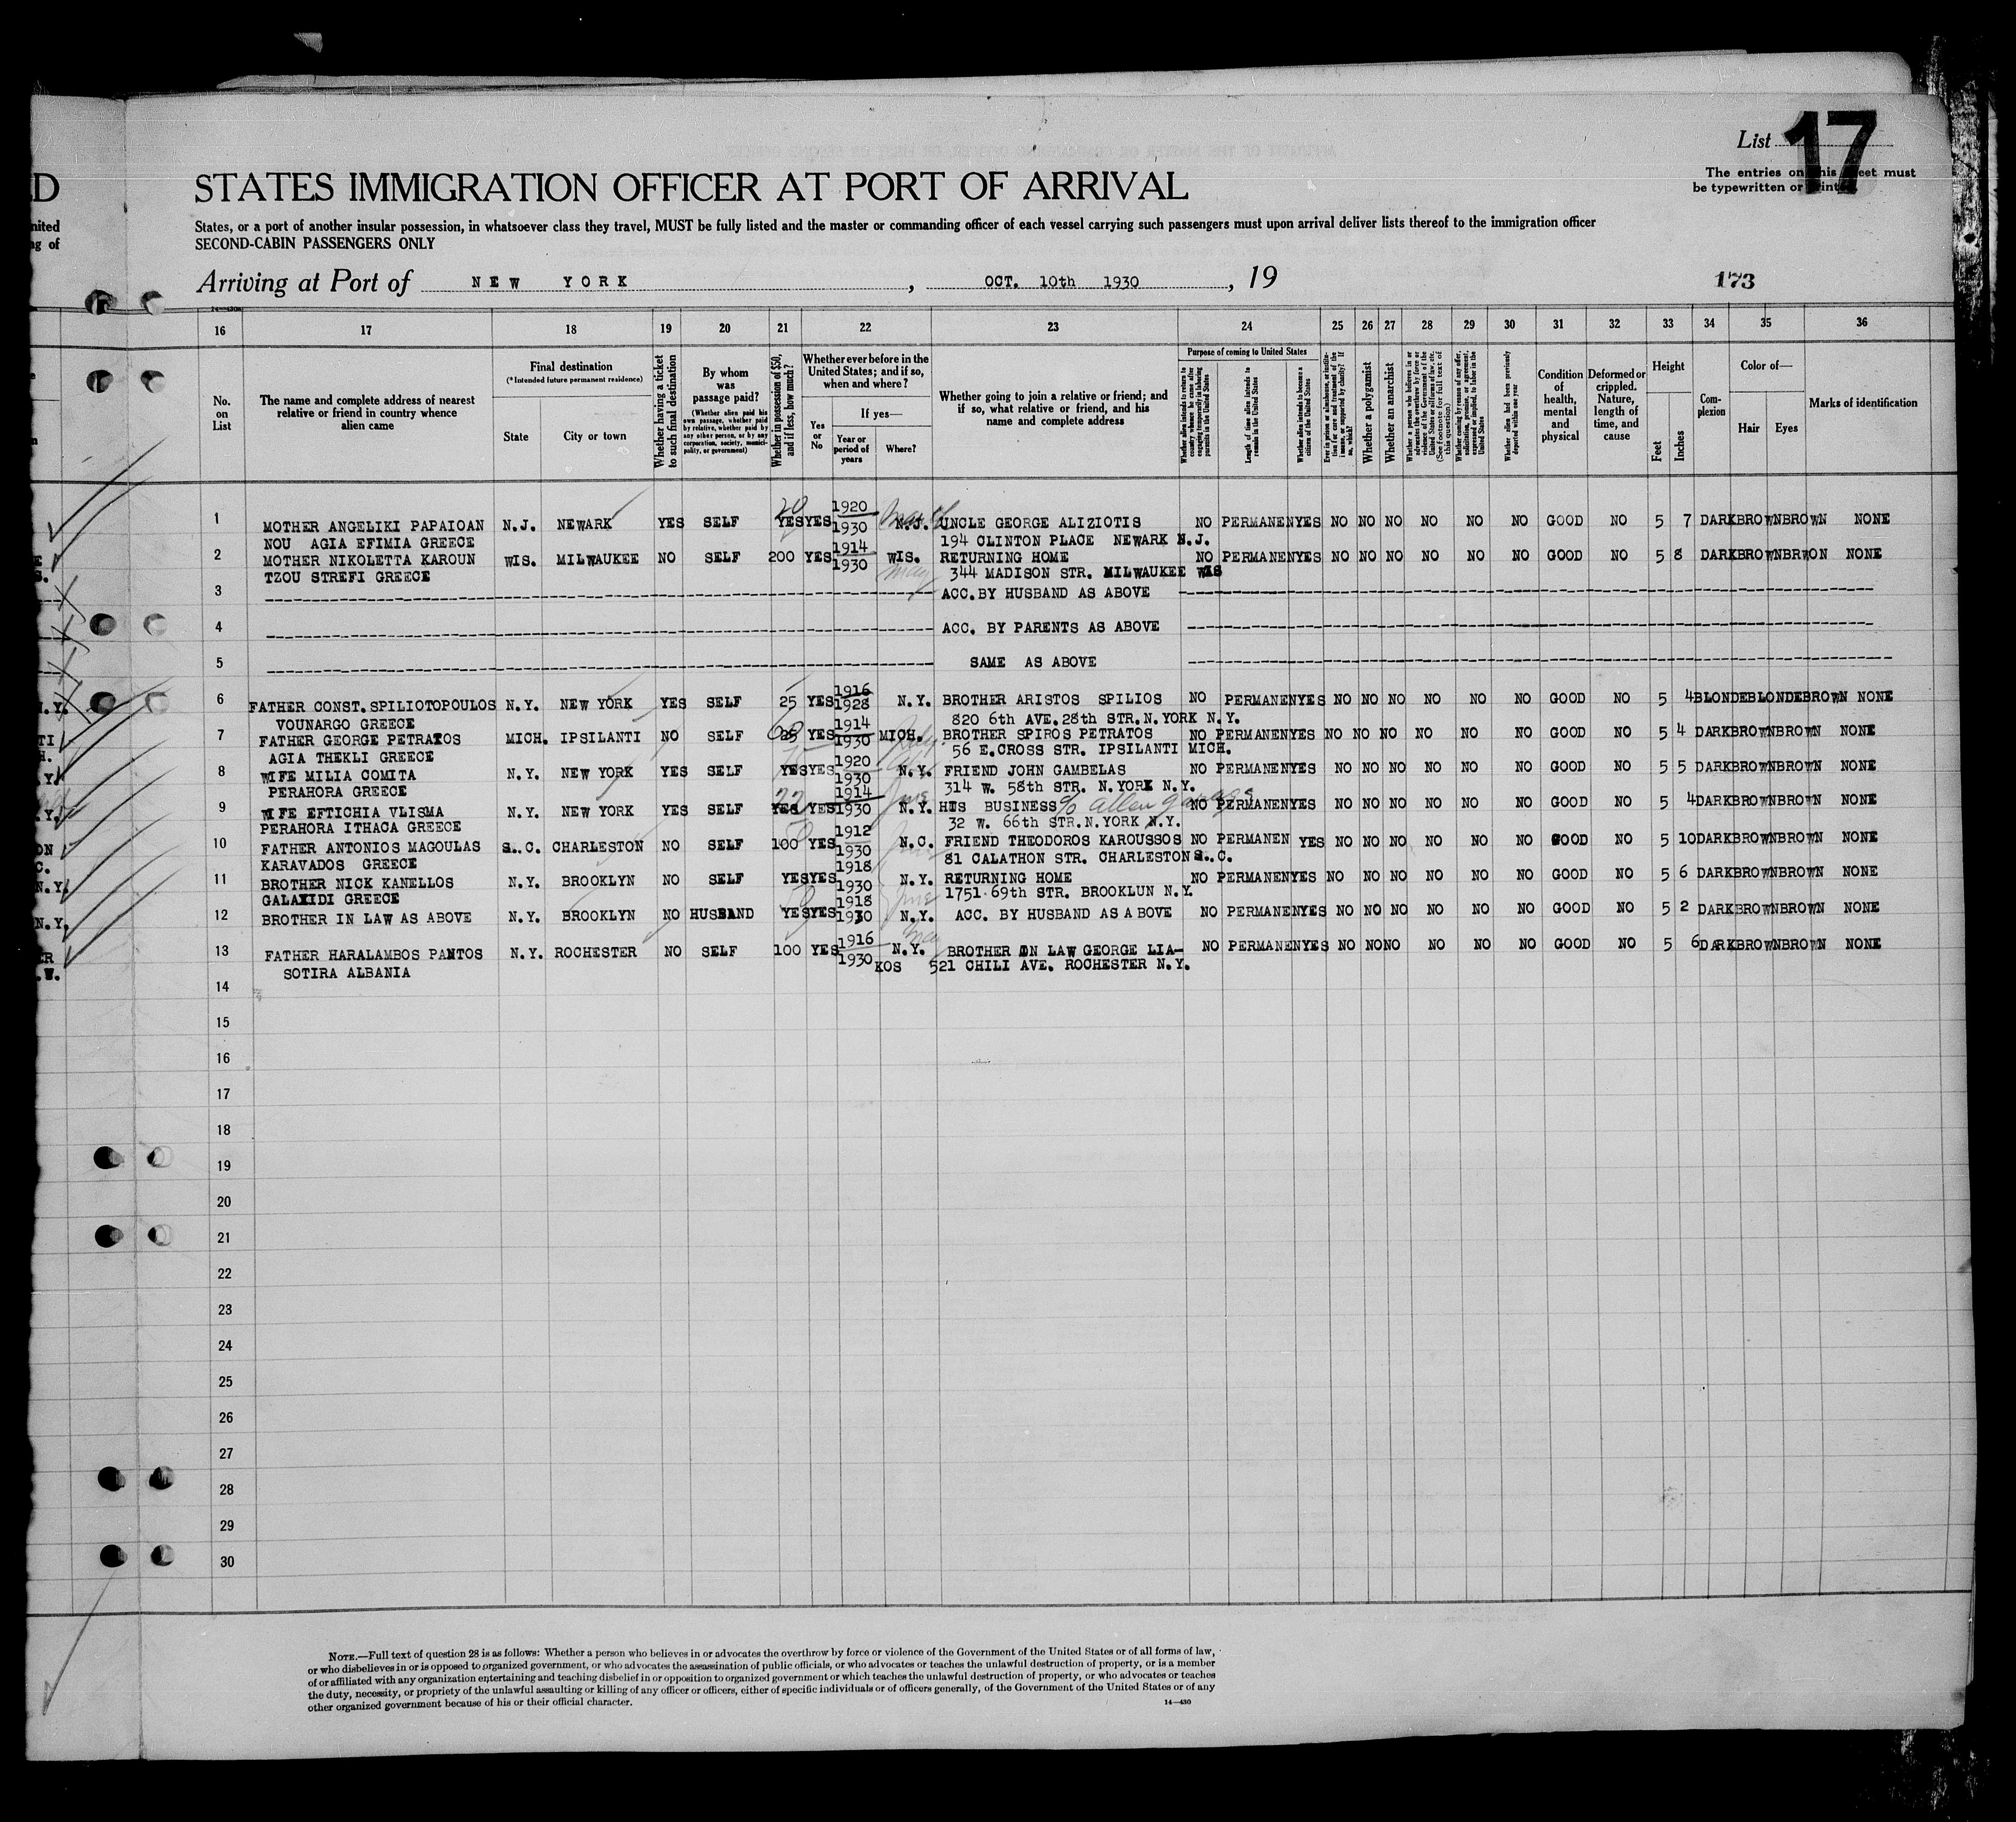 List 17
The entries on this sheet must
be typewritten or printed
D
STATES IMMIGRATION OFFICER AT PORT OF ARRIVAL
nited
ng of
States, or a port of another insular possession, in whatsoever class they travel, MUST be fully listed and the master or commanding officer of each vessel carrying such passengers must upon arrival deliver lists thereof to the immigration officer
SECOND-CABIN PASSENGERS ONLY
Arriving at Port of NEW YORK, OCT. 10th 1930, 19
173
16 17 18 19 20 21 22 23 24 25 26 27 28 29 30 31 32 33 34 35 36
No. on List
The name and complete address of nearest relative or friend in country whence alien came
Final destination
(*Intended future permanent residence)
State
City or town
Whether having a ticket to such final destination
By whom was passage paid?
(Whether alien paid his own passage, whether paid by relative, whether paid by any other person, or by any corporation, society, municipality, or government)
Whether in possession of $50, and if less, how much?
Whether ever before in the United States; and if so, when and where?
Yes or No
If yes—
Year or period of years
Where?
Whether going to join a relative or friend; and if so, what relative or friend, and his name and complete address
Purpose of coming to United States
Whether alien intends to return to country whence he came after engaging temporarily in laboring pursuits in the United States
Length of time alien intends to remain in the United States
Whether alien intends to become a citizen of the United States
Ever in prison or almshouse, or institution for care and treatment of the insane, or supported by charity? If so, which?
Whether a polygamist
Whether an anarchist
Whether a person who believes in or advocates the overthrow by force or violence of the Government of the United States or all forms of law, etc. (See footnote for full text of this question)
Whether coming by reason of any offer, solicitation, promise, or agreement, expressed or implied, to labor in the United States
Whether alien had been previously deported within one year
Condition of health, mental and physical
Deformed or crippled. Nature, length of time, and cause
Height
Feet
Inches
Complexion
Color of—
Hair
Eyes
Marks of identification
1 MOTHER ANGELIKI PAPAIOAN N.J. NEWARK YES SELF 20 YES YES 1920 1930 N.J. UNCLE GEORGE ALIZIOTIS NO PERMANEN YES NO NO NO NO NO NO GOOD NO 5 7 DARK BROWN BROWN NONE
NOU AGIA EFIMIA GREECE 194 CLINTON PLACE NEWARK N.J.
2 MOTHER NIKOLETTA KAROUN WIS. MILWAUKEE NO SELF 200 YES 1914 1930 WIS. RETURNING HOME NO PERMANEN YES NO NO NO NO NO NO GOOD NO 5 8 DARK BROWN BRWON NONE
TZOU STREFI GREECE may 344 MADISON STR. MILWAUKEE WIS
3 ACC.BY HUSBAND AS ABOVE
4 ACC. BY PARENTS AS ABOVE
5 SAME AS ABOVE
6 FATHER CONST.SPILIOTOPOULOS N.Y. NEW YORK YES SELF 25 YES 1916 1928 N.Y. BROTHER ARISTOS SPILIOS NO PERMANEN YES NO NO NO NO NO NO GOOD NO 5 4 BLONDE BLONDE BROWN NONE
VOUNARGO GREECE 820 6th AVE.28th STR.N.YORK N.Y.
7 FATHER GEORGE PETRATOS MICH. IPSILANTI NO SELF YES 1914 1930 MICH. BROTHER SPIROS PETRATOS NO PERMANEN YES NO NO NO NO NO NO GOOD NO 5 4 DARK BROWN BROWN NONE
AGIA THEKLI GREECE July 56 E.CROSS STR. IPSILANTI MICH.
8 WIFE MILIA COMITA N.Y. NEW YORK YES SELF YES YES 1920 1930 N.Y. FRIEND JOHN GAMBELAS NO PERMANEN YES NO NO NO NO NO NO GOOD NO 5 5 DARK BROWN BROWN NONE
PERAHORA GREECE 314 W. 58th STR. N.YORK N.Y.
9 WIFE EFTICHIA VLISMA N.Y. NEW YORK YES SELF 22 YES YES 1914 1930 June N.Y. HIS BUSINESS c/o Allen garage NO PERMANEN YES NO NO NO NO NO NO GOOD NO 5 4 DARK BROWN BROWN NONE
PERAHORA ITHACA GREECE 32 W. 66th STR.N.YORK N.Y.
10 FATHER ANTONIOS MAGOULAS S.C. CHARLESTON NO SELF 100 YES 1912 1930 N.C. FRIEND THEODOROS KAROUSSOS NO PERMANEN YES NO NO NO NO NO NO GOOD NO 5 10 DARK BROWN BROWN NONE
KARAVADOS GREECE 81 CALATHON STR. CHARLESTON S.C.
11 BROTHER NICK KANELLOS N.Y. BROOKLYN NO SELF YES YES 1918 1930 N.Y. RETURNING HOME NO PERMANEN YES NO NO NO NO NO NO GOOD NO 5 6 DARK BROWN BROWN NONE
GALAXIDI GREECE June 1751-69th STR. BROOKLUN N.Y.
12 BROTHER IN LAW AS ABOVE N.Y. BROOKLYN NO HUSBAND YES YES 1918 1930 N.Y. ACC. BY HUSBAND AS ABOVE NO PERMANEN YES NO NO NO NO NO NO GOOD NO 5 2 DARK BROWN BROWN NONE
13 FATHER HARALAMBOS PANTOS N.Y. ROCHESTER NO SELF 100 YES 1916 1930 May N.Y. BROTHER IN LAW GEORGE LIA- NO PERMANEN YES NO NO NO NO NO NO GOOD NO 5 6 DARK BROWN BROWN NONE
SOTIRA ALBANIA KOS 521 CHILI AVE. ROCHESTER N.Y.
14
15
16
17
18
19
20
21
22
23
24
25
26
27
28
29
30
NOTE.—Full text of question 28 is as follows: Whether a person who believes in or advocates the overthrow by force or violence of the Government of the United States or of all forms of law,
or who disbelieves in or is opposed to organized government, or who advocates the assassination of public officials, or who advocates or teaches the unlawful destruction of property, or is a member
of or affiliated with any organization entertaining and teaching disbelief in or opposition to organized government or which teaches the unlawful destruction of property, or who advocates or teaches
the duty, necessity, or propriety of the unlawful assaulting or killing of any officer or officers, either of specific individuals or of officers generally, of the Government of the United States or of any
other organized government because of his or their official character.
14—430